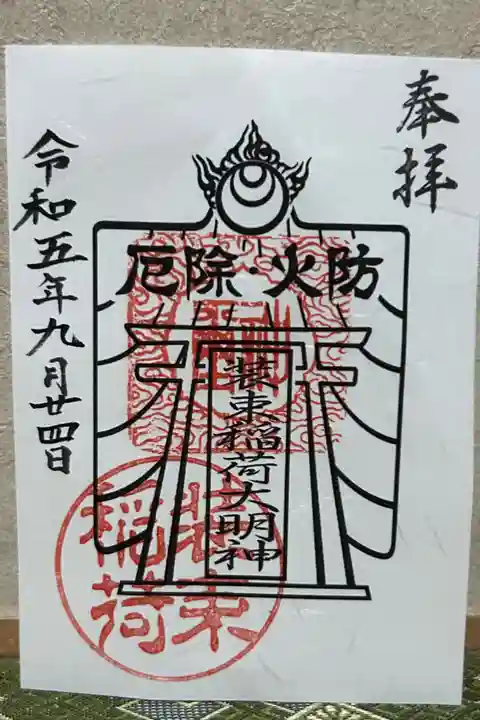 奉拝
火防・除厄
装束稲荷大明神
令和五年九月廿四日
装束
稲荷